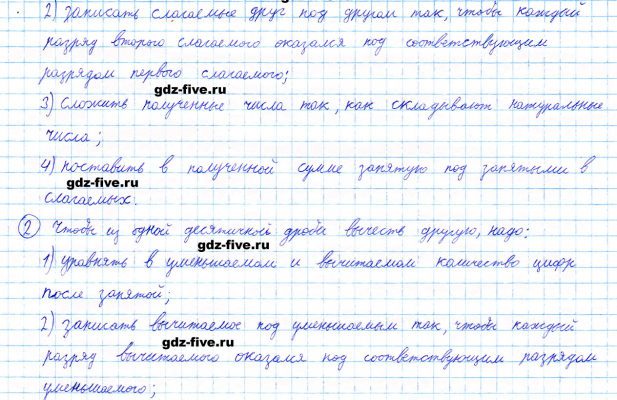 2) записать слагаемые друг под другом так, чтобы каждый
разряд второго слагаемого оказался под соответствующим
разрядом первого слагаемого;
gdz-five.ru
3) сложить полученные числа так, как складывают натуральные
числа;
gdz-five.ru
4) поставить в полученной сумме запятую под запятыми в
gdz-five.ru
слагаемых.
2 Чтобы из одной десятичной дроби вычесть другую, надо:
gdz-five.ru
1) уравнять в уменьшаемом и вычитаемом количество цифр
после запятой;
gdz-five.ru
2) записать вычитаемое под уменьшаемым так, чтобы каждый
gdz-five.ru
разряд вычитаемого оказался под соответствующим разрядом
уменьшаемого;
gdz-five.ru